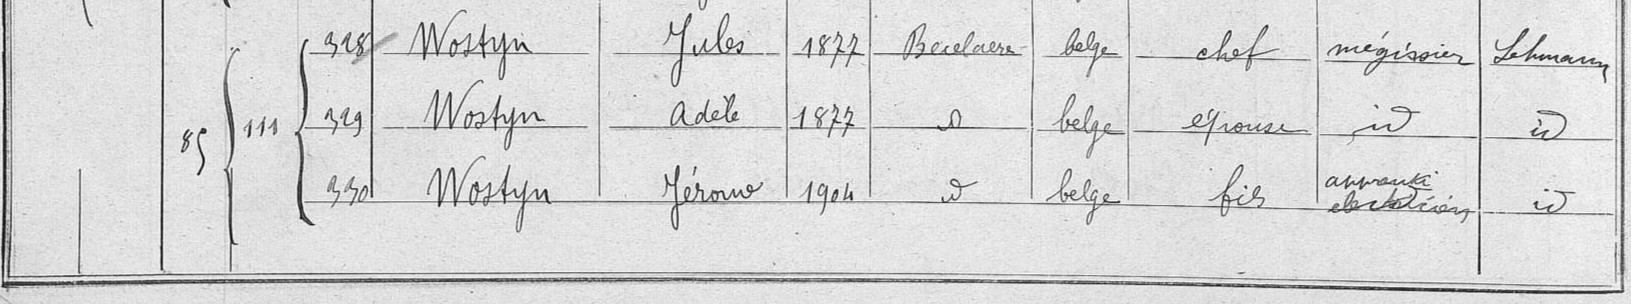 328 Wostyn Jules 1877 Becelaere belge chef mégissier Lehmann
85 111 329 Wostyn Adèle 1877 id belge épouse id id
330 Wostyn Jérome 1904 id belge fils apprenti électricien id